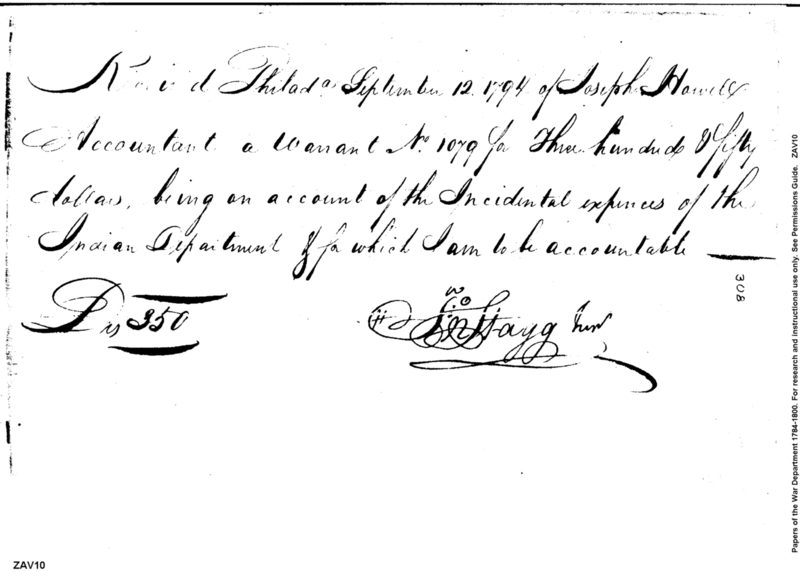 Rec'd Philada September 12. 1794 of Joseph Howell
Accountant a Warrant No. 1079 for Three hundred & fifty
dollars, being on account of the Incidental expences of the
Indian Department & for which I am to be accountable
308
Dis 350
Jno Stagg Junr
ZAV10
Papers of the War Department 1784-1800. For research and instructional use only. See Permissions Guide. ZAV10